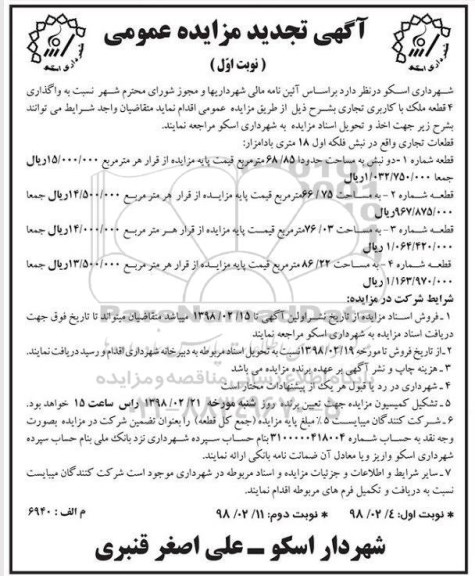 آگهی تجدید مزایده عمومی
( نوبت اوّل )
شهرداری اسکو
شهرداری اسکو
شهرداری اسکو درنظر دارد براساس آئین نامه مالی شهرداریها و مجوز شورای محترم شهر نسبت به واگذاری
۴ قطعه ملک با کاربری تجاری بشرح ذیل از طریق مزایده عمومی اقدام نماید متقاضیان واجد شرایط می توانند
بشرح زیر جهت اخذ و تحویل اسناد مزایده به شهرداری اسکو مراجعه نمایند.
قطعات تجاری واقع در نبش فلکه اول ۱۸ متری بادامزار:
قطعه شماره ۱ -دو نبش به مساحت حدودا ۸۵/ ۶۸مترمربع قیمت پایه مزایده از قرار هر مترمربع ۱۵/۰۰۰/۰۰۰ریال
جمعا ۱/۰۳۲/۷۵۰/۰۰۰ریال
قطعه شماره ۲ - به مساحت ۷۵/ ۶۶مترمربع قیمت پایه مزایده از قرار هر متر مربع ۱۴/۵۰۰/۰۰۰ریال جمعا
۹۶۷/۸۷۵/۰۰۰ریال
قطعه شماره ۳ - به مساحت ۰۳/ ۷۶مترمربع قیمت پایه مزایده از قرار هر متر مربع ۱۴/۰۰۰/۰۰۰ریال جمعا
۱/۰۶۴/۴۲۰/۰۰۰ ریال
قطعه شماره ۴ - به مساحت ۲۲/ ۸۶ مترمربع قیمت پایه مزایده از قرار هر متر مربع ۱۳/۵۰۰/۰۰۰ریال جمعا
۱/۱۶۳/۹۷۰/۰۰۰ ریال
شرایط شرکت در مزایده:
۱ - فروش اسناد مزایده از تاریخ نشر اولین آگهی تا ۱۵/ ۰۲/ ۱۳۹۸ میباشد متقاضیان میتواند تا تاریخ فوق جهت
دریافت اسناد مزایده به شهرداری اسکو مراجعه نمایند
۲ -از تاریخ فروش تا مورخه ۱۳۹۸/۰۲/۱۹نسبت به تحویل اسناد مربوطه به دبیرخانه شهرداری اقدام و رسید دریافت نمایند.
۳ - هزینه چاپ و نشر آگهی بر عهده برنده مزایده می باشد
۴ - شهرداری در رد یا قبول هر یک از پیشنهادات مختار است
۵ - تشکیل کمیسیون مزایده جهت تعیین برنده روز شنبه مورخه ۲۱/ ۰۲/ ۱۳۹۸ راس ساعت ۱۵ خواهد بود.
۶ - شرکت کنندگان میبایست ۵٪ مبلغ پایه مزایده (جمع کل قطعه) را بعنوان تضمین شرکت در مزایده بصورت
وجه نقد به حساب شماره ۳۱۰۰۰۰۰۴۱۸۰۰۴ بنام حساب سپرده شهرداری نزد بانک ملی بنام حساب سپرده
شهرداری اسکو واریز ویا معادل آن ضمانت نامه بانکی ارائه نمایند.
۷ - سایر شرایط و اطلاعات و جزئیات مزایده و اسناد مربوطه در شهرداری موجود است شرکت کنندگان میبایست
نسبت به دریافت و تکمیل فرم های مربوطه اقدام نمایند.
* نوبت اول: ۴/ ۰۲/ ۹۸ * نوبت دوم: ۱۱/ ۰۲/ ۹۸ م الف : ۶۹۴۰
شهردار اسکو ــ علی اصغر قنبری